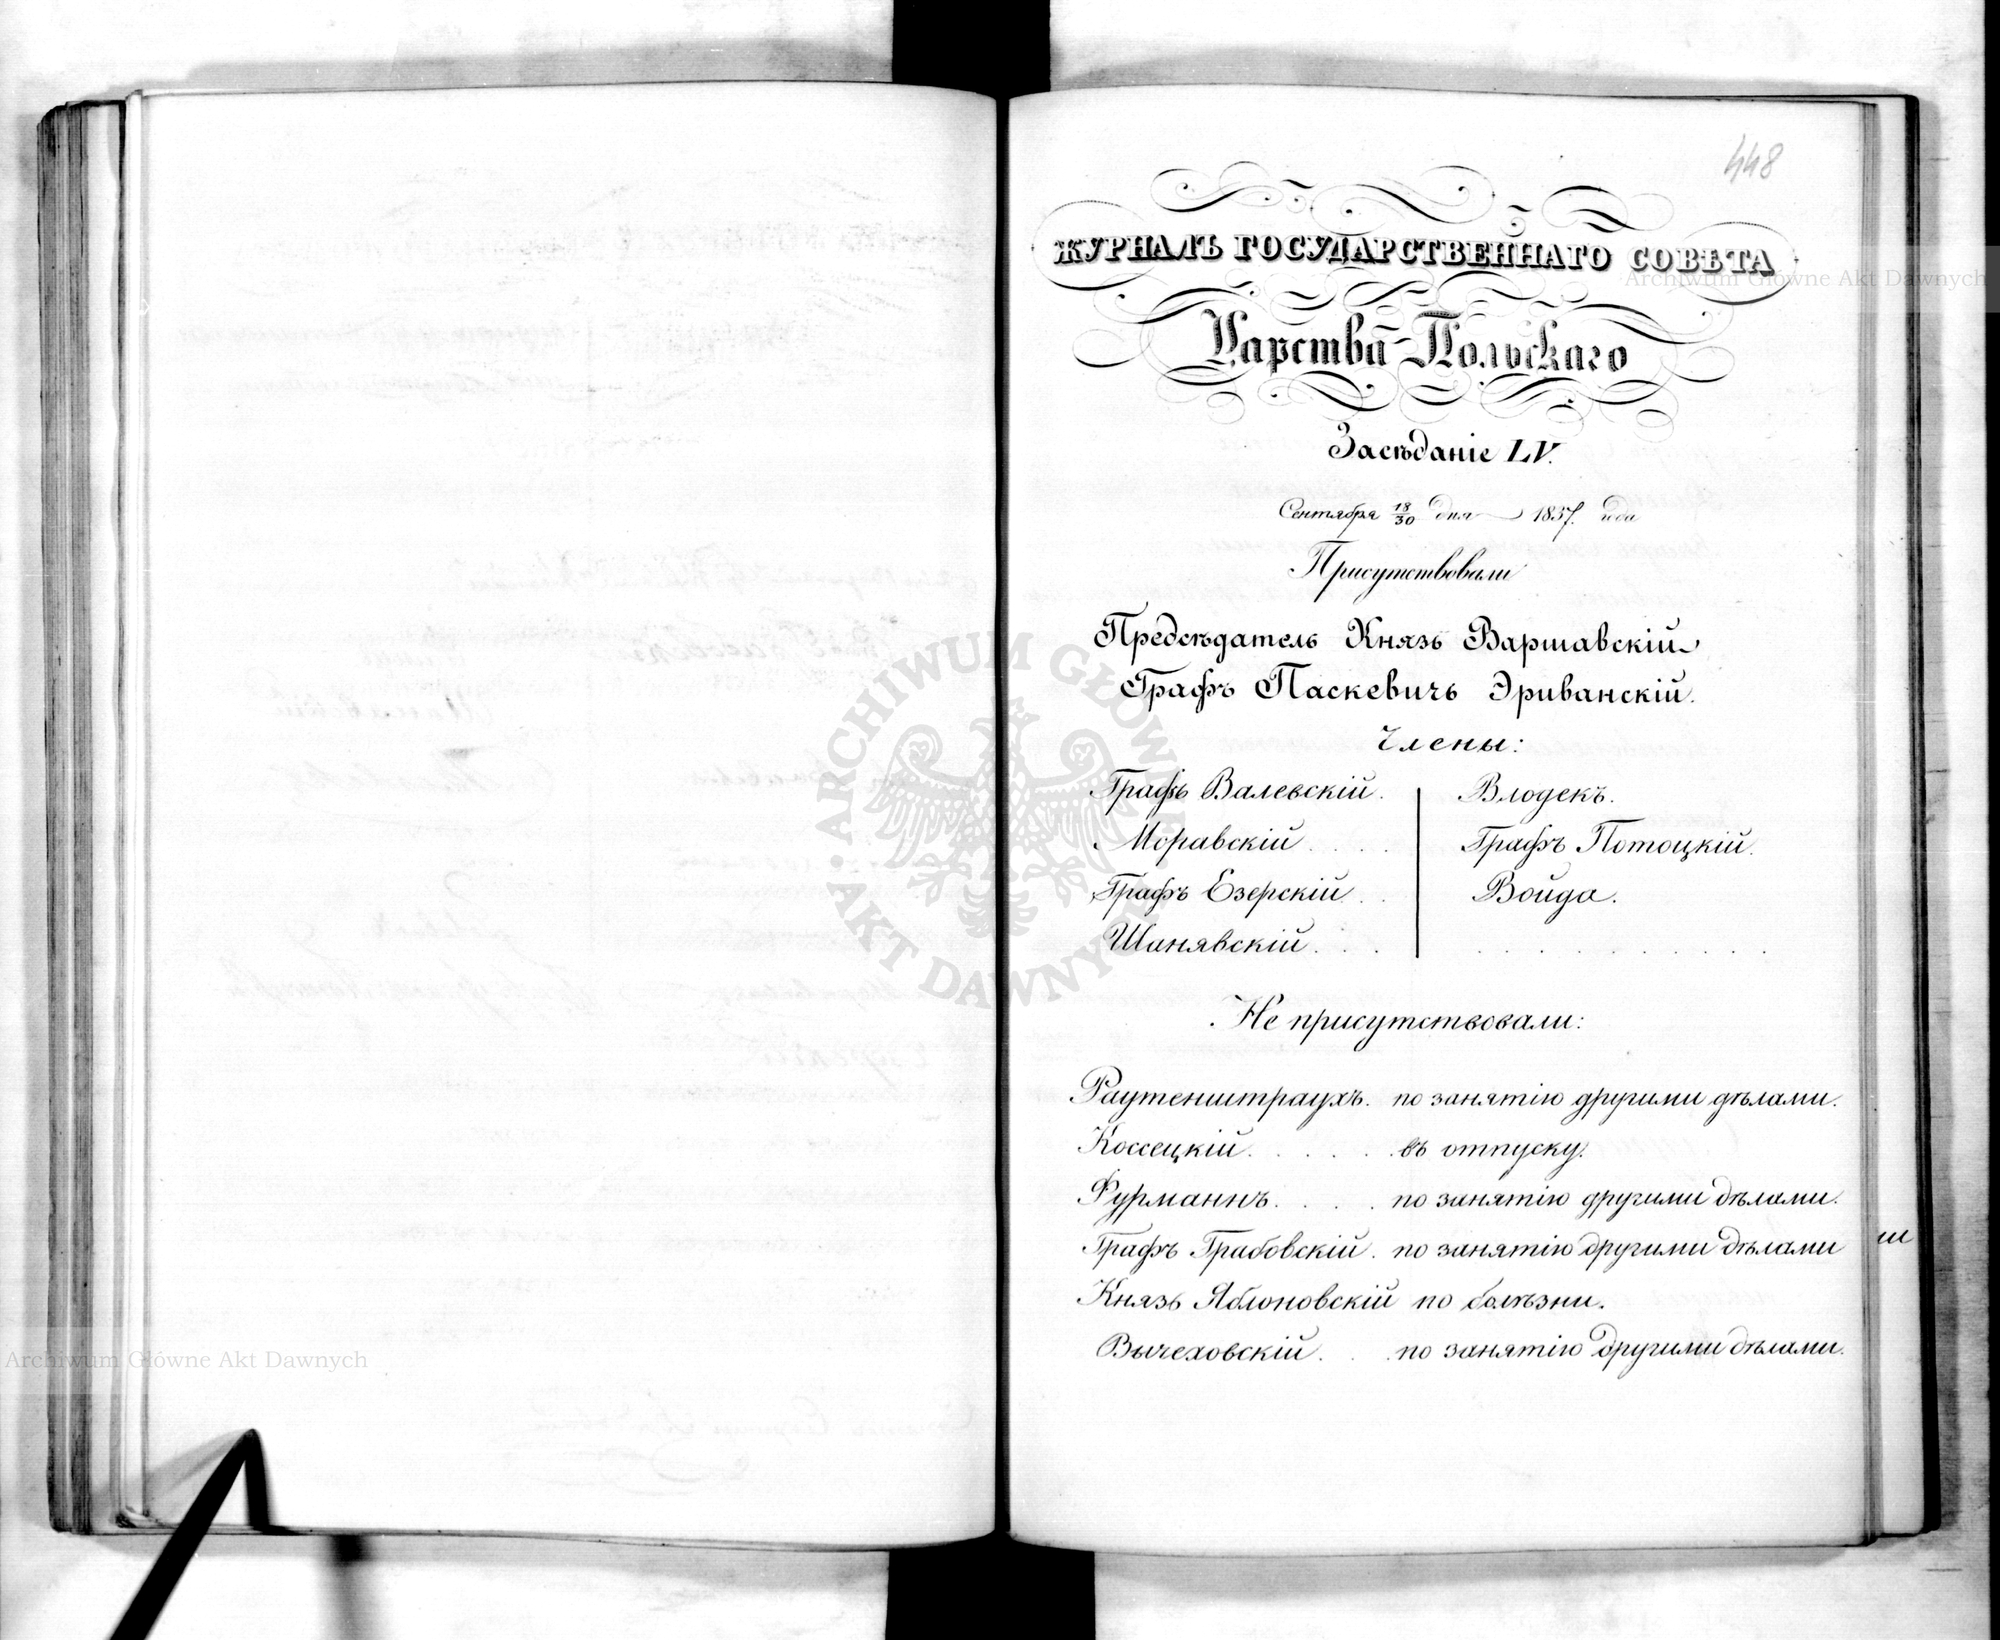 448
ЖУРНАЛЪ ГОСУДАРСТВЕННАГО СОВѢТА
Царства Польскаго
Засѣданіе LV.
Сентября 18/30 дня 1837. года
Присутствовали
Предсѣдатель Князь Варшавскій
Графъ Паскевичъ Эриванскій.
Члены:
Графъ Валевскій. Влодекъ.
Моравскій . . . . Графъ Потоцкій.
Графъ Езерскій . . Войда.
Шанявскій . . .
Не присутствовали:
Раутенштраухъ. по занятію другими дѣлами.
Коссецкій . . . . . . въ отпуску.
Фурманнъ . . . . по занятію другими дѣлами.
Графъ Грабовскій . по занятію другими дѣлами
Князь Яблоновскій по болѣзни.
Вычеховскій . . . по занятію другими дѣлами.
Archiwum Główne Akt Dawnych
ARCHIWUM GŁÓWNE AKT DAWNYCH
Archiwum Główne Akt Dawnych